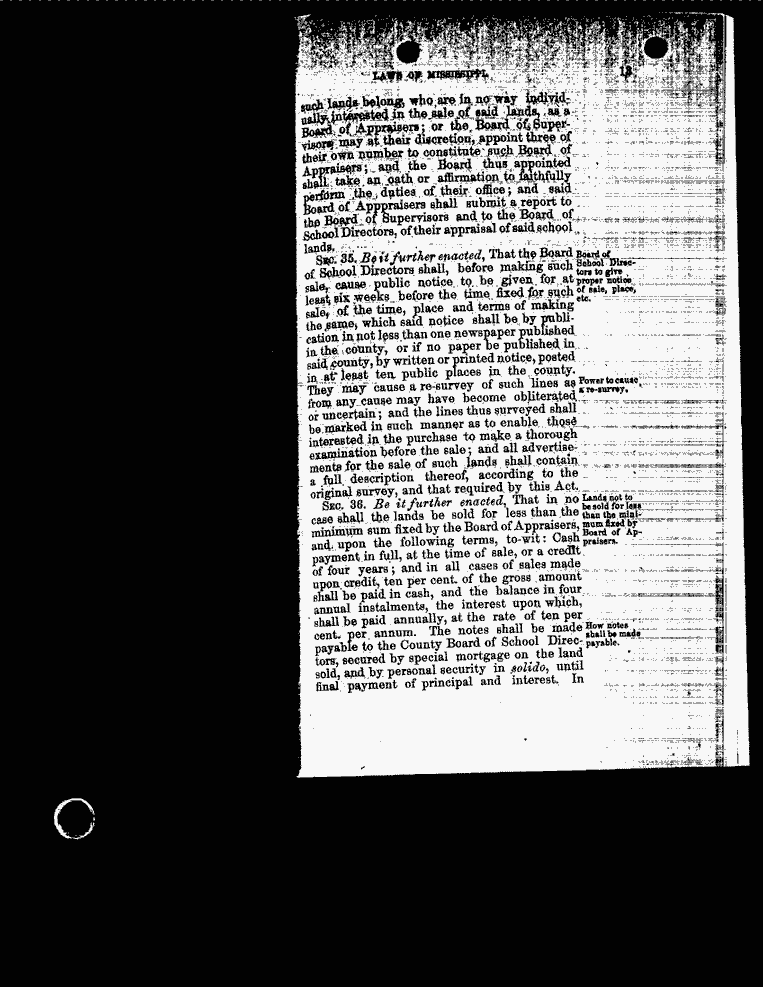 LAWS OF MISSISSIPPI. 13
such lands belong, who are in no way individ-
ually interested in the sale of said lands, as a
Board of Appraisers; or the Board of Super-
visors may at their discretion, appoint three of
their own number to constitute such Board of
Appraisers; and the Board thus appointed
shall take an oath or affirmation to faithfully
perform the duties of their office; and said
Board of Apppraisers shall submit a report to
the Board of Supervisors and to the Board of
School Directors, of their appraisal of said school
lands.
SEC. 35. Be it further enacted, That the Board
of School Directors shall, before making such
sale, cause public notice to be given for at
least six weeks before the time fixed for such
sale, of the time, place and terms of making
the same, which said notice shall be by publi-
cation in not less than one newspaper published
in the county, or if no paper be published in
said county, by written or printed notice, posted
in at least ten public places in the county.
They may cause a re-survey of such lines as
from any cause may have become obliterated
or uncertain; and the lines thus surveyed shall
be marked in such manner as to enable those
interested in the purchase to make a thorough
examination before the sale; and all advertise-
ments for the sale of such lands shall contain
a full description thereof, according to the
original survey, and that required by this Act.
SEC. 36. Be it further enacted, That in no
case shall the lands be sold for less than the
minimum sum fixed by the Board of Appraisers,
and upon the following terms, to-wit: Cash
payment in full, at the time of sale, or a credit
of four years; and in all cases of sales made
upon credit, ten per cent. of the gross amount
shall be paid in cash, and the balance in four
annual instalments, the interest upon which,
shall be paid annually, at the rate of ten per
cent. per annum. The notes shall be made
payable to the County Board of School Direc-
tors, secured by special mortgage on the land
sold, and by personal security in solido, until
final payment of principal and interest. In
Board of
School Direc-
tors to give
proper notice
of sale, place,
etc.
Power to cause
a re-survey.
Lands not to
be sold for less
than the mini-
mum fixed by
Board of Ap-
praisers.
How notes
shall be made
payable.